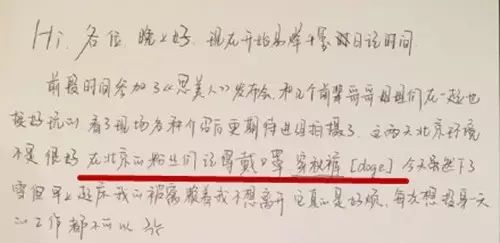 Hi，各位 晚上好．现在开始易烊千玺的日记时间
前段时间参加了《思美人》发布会．和几个前辈哥哥姐姐们在一起也
挺好玩的 看了现场各种介绍后更期待进组拍摄了．这两天北京环境
不是很好 在北京的粉丝们记得戴口罩 穿秋裤［doge］今天虽然下了
雪但早上起床我的被窝报着我不想离开 它真的是好烦，每次想投身一天
的工作都不可以